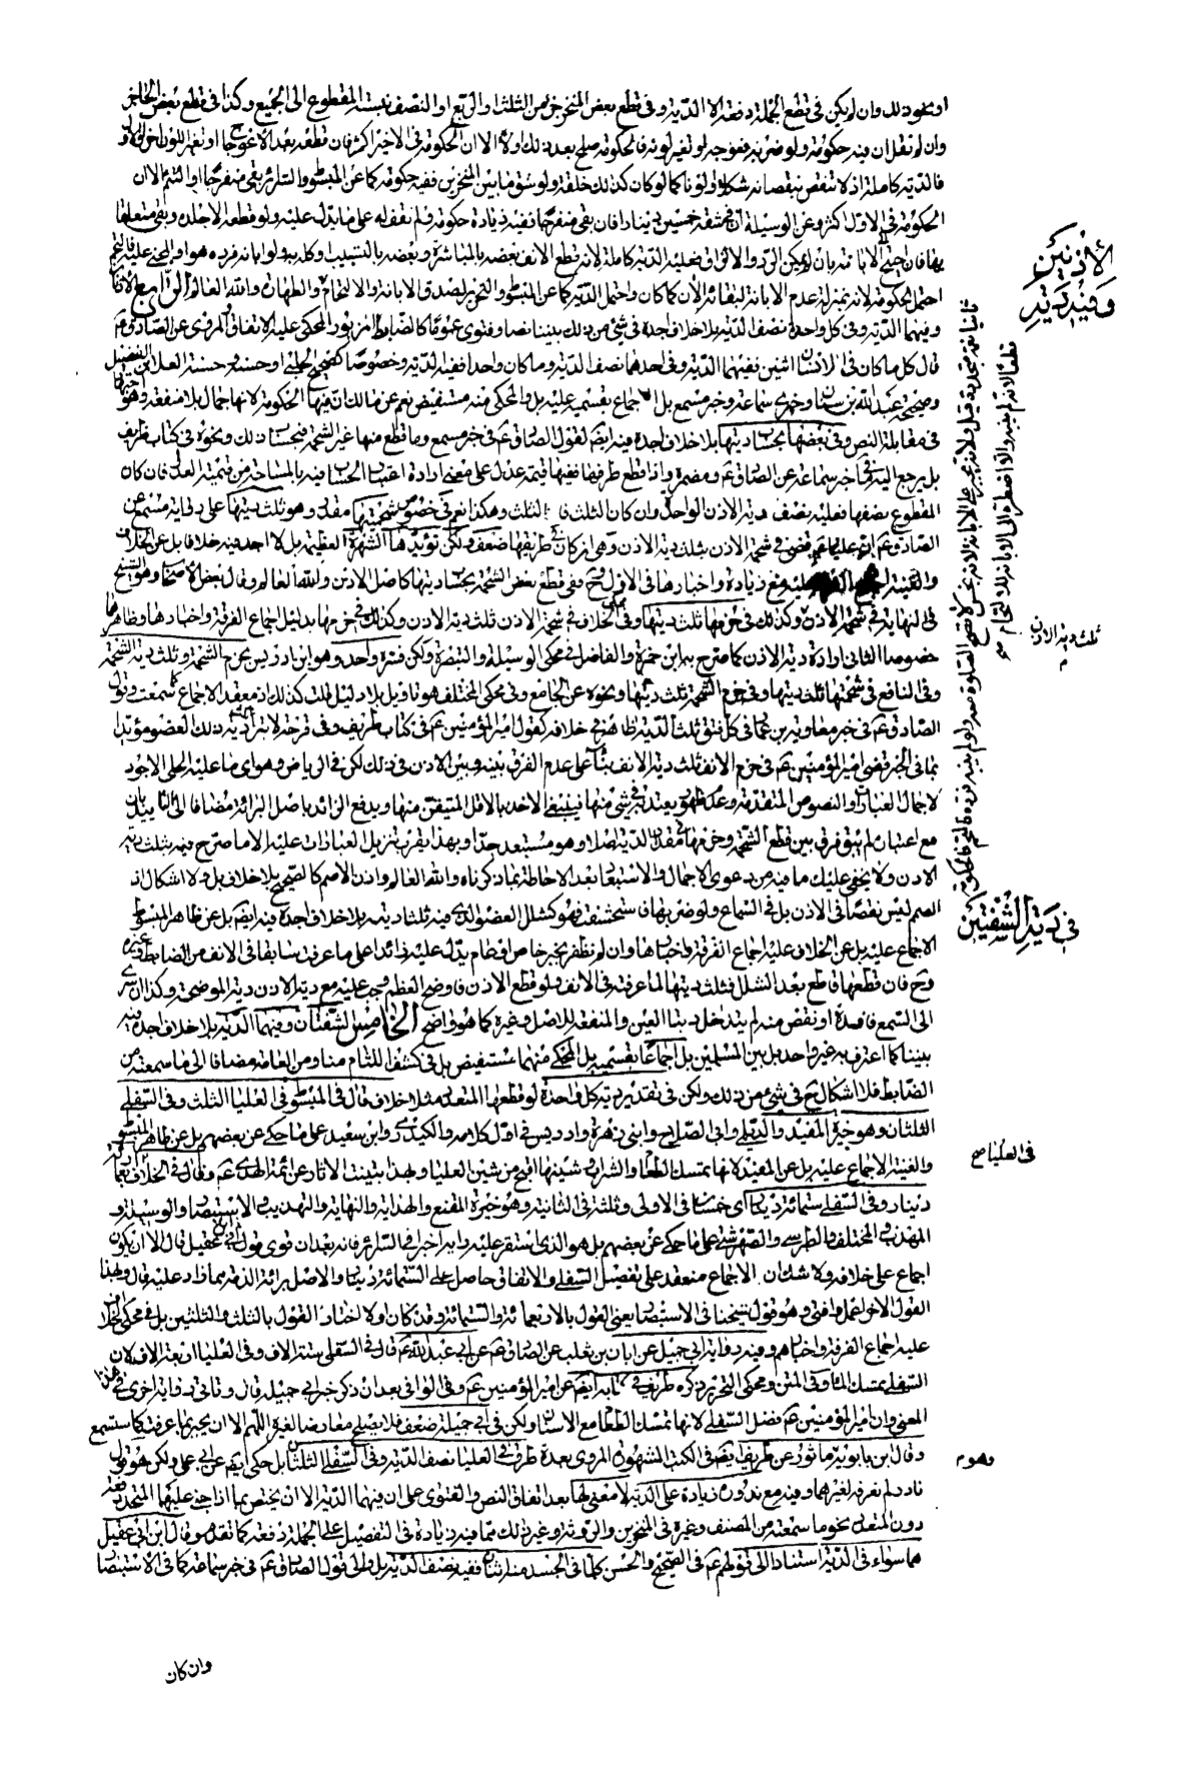 او نحو ذلك وان لم يكن في قطع الجملة دفعة الا الدية وفي قطع بعض المنخر جزء من الثلث او الربع او النصف نسبته المقطوع الى الجميع وكذا في قطع بعض الحاجز
وان لم نقل ان فيه حكومة ولو ضربه فعوجه او تغير لونه فالحكومة صلح بعد ذلك او لا الا ان الحكومة في الاخير اكثر فان قطعه بعد الاعوجاج او تغير اللون
فالدية كاملة اذ لا تنقص بنقصانه شكلا او لونا كما لو كان كذلك خلقة ولو شق ما بين المنخرين ففيه حكومة كما عن المبسوط والتحرير بقي منفرجا او التئم الا ان
الحكومة في الاول اكثر وعن الوسيلة ان في شقه خمسين دينارا فان بقي منفرجا ففيه زيادة حكومة ولم نقف له على ما يدل عليه ولو قطعه الا جلده وبقي متعلقا
بها فان احتيج الى الابانة بان لم يمكن الرد والالزاق فعليه الدية كاملة لانه قطع الانف بعضه بالمباشرة وبعضه بالتسبيب وكله ولو ابانه فرده هو او المجني عليه فالتحم
احتمل الحكومة لانه بمنزلة عدم الابانة لبقائه الان كما كان واحتمل الدية كما عن المبسوط والتحرير لصدق الابانة والالتحام والطهارة والله العالم الرابع الاذنان
وفيهما الدية وفي كل واحدة نصف الدية بلا خلاف اجده في شيء من ذلك بيننا نصا وفتوى عموما كالضابط المزبور المحكي عليه الاتفاق المروي عن الصادق ع م
قال كل ما كان في الانسان اثنين ففيهما الدية وفي احدهما نصف الدية وما كان واحدا ففيه الدية وخصوصا كصحيح الحلبي او حسنه وحسنة العلاء بن الفضيل
وصحيحة عبد الله بن سنان وخبري سماعة وخبر مسمع بل الاجماع بقسميه عليه بل والمحكي منه مستفيض نعم عن مالك ان فيها الحكومة لانها جمال بلا منفعة وهو اجتهاد
في مقابلة النص وفي بعضها بحساب ديتها بلا خلاف اجده فيه ايضا لقول الصادق ع م في خبر مسمع وما قطع منها غير الشحمة فبحساب ذلك ونحوه في كتاب ظريف
بل يرجع اليه في خبر سماعة عن الصادق ع م ومضمره واذا قطع طرفها ففيها قيمة عدل على معنى ارادة اعتبار الحساب فيه بالمساحة من قيمة العدل فان كان
المقطوع نصفها فعليه نصف دية الاذن الواحدة وان كان الثلث فالثلث وهكذا نعم في خصوص شحمتها مقدر وهو ثلث ديتها على رواية مسمع عن
الصادق ع م ان عليا ع م قضى في شحمة الاذن بثلث دية الاذن وهي ان كان في طريقها ضعف ولكن تؤيدها الشهرة العظيمة بل لا اجد فيه خلافا بل عن الخلاف
والغنية الاجماع عليه مع زيادة واخبارها في الاول وح ففي قطع بعض الشحمة بحساب ديتها كاصل الاذن والله العالم وقال بعض الاصحاب وهو الشيخ
في النهاية في شحمة الاذن وكذلك في خرمها ثلث ديتها وفي محكي الخلاف في شحمة الاذن ثلث دية الاذن وكذلك في خرمها بدليل اجماع الفرقة واخبارها وظاهرهما
خصوصا الثاني ارادة دية الاذن كما صرح به ابن حمزة والفاضل في محكي الوسيلة والتبصرة ولكن فسره واحد وهو ابن ادريس بخرم الشحمة وثلث دية الشحمة
وفي النافع في شحمتها ثلث ديتها وفي خرم الشحمة ثلث ديتها ونحوه عن الجامع وفي محكي المختلف هو تاويل بلا دليل قلت كذلك اذ معقد الاجماع كما سمعت وقول
الصادق ع م في خبر معاوية بن عمار في كل فتق ثلث الدية ظاهر في خلافه كقول امير المؤمنين ع م في كتاب ظريف وفي قرحة لا تبرأ ثلث دية ذلك العضو مؤيدا
بما في الخبر قضى امير المؤمنين ع م في خرم الانف ثلث دية الانف بناء على عدم الفرق بينه وبين الاذن في ذلك لكن في الرياض وهو اي ما عليه الحلي الاجود
لاجمال العبارات والنصوص المتقدمة وعدم ظهور يعتد به في شيء منها فينبغي الاخذ بالاقل المتيقن منها ويدفع الزائد باصل البرائة مضافا الى التاييد بان
مع اعتبار لم يبق فرق بين قطع الشحمة وخرمها في مقدار الدية اصلا وهو مستبعد جدا وبهذا يقرب تنزيل العبارات عليه الا ما صرح فيه بثلث دية
الاذن ولا يخفى عليك ما فيه من دعوى الاجمال والاستبعاد بعد الاحاطة بما ذكرناه والله العالم واذن الاصم كالصحيح بلا خلاف بل ولا اشكال اذ
الصمم ليس نقصا في الاذن بل في السماع ولو ضربها فاستحشفت فهو كشلل العضو الذي فيه ثلثا ديته بلا خلاف اجده فيه ايضا بل عن ظاهر المبسوط
الاجماع عليه بل عن الخلاف عليه اجماع الفرقة واخبارها وان لم نظفر بخبر خاص او عام يدل عليه زائدا على ما عرفت سابقا في الانف من الضابط وغيره
وح فان قطعها قاطع بعد الشلل فثلث ديتها لما عرفته في الانف ولو قطع الاذن فاوضح العظم وجب عليه مع دية الاذن دية الموضحة وكذا ان سرى
الى السمع فافسده او نقص منه لم يتداخل ديتا العين والمنفعة للاصل وغيره كما هو واضح الخامس الشفتان وفيهما الدية بلا خلاف اجده فيه
بيننا كما اعترف به غير واحد بل بين المسلمين بل اجماعا بقسميه بل المحكي منهما مستفيض بل في كشف اللثام منا ومن العامة مضافا الى ما سمعته من
الضابط فلا اشكال ح في شيء من ذلك ولكن في تقدير دية كل واحدة لو قطعها المتعدي مثلا خلاف قال في المبسوط في العليا الثلث وفي السفلى
الثلثان وهو خيرة المفيد والديلمي وابي الصلاح وابني زهرة وادريس في اول كلامه والكيدري وابن سعيد على ما حكي عن بعضهم بل عن ظاهر المبسوط
والغنية الاجماع عليه بل عن المفيد لانها تمسك الطعام والشراب وشينها اقبح من شين العليا وبهذا ثبتت الاثار عن ائمة الهدى ع م وقال في الخلاف اربعمائة
دينار وفي السفلى ستمائة دينار اي خمسان في الاولى وثلثة في الثانية وهو خيرة المقنع والهداية والنهاية والتهذيب والاستبصار والوسيلة و
المهذب والمختلف والطبرسي والصهرشتي على ما حكي عن بعضهم بل هو الذي استقر عليه رايه اخيرا في السرائر فانه بعد ان قوى قول ابن ابي عقيل قال الا ان يكون
اجماع على خلافه ولا شك ان الاجماع منعقد على تفضيل السفلى والاتفاق حاصل على الستمائة دينار والاصل برائة الذمة مما زاد عليه قال وبهذا
القول الاخير اعمل وافتي وهو قول شيخنا في الاستبصار يعني القول بالاربعمائة والستمائة وقد كان اولا اختار القول بالثلث والثلثين بل في محكي الخلاف
عليه اجماع الفرقة واخبارهم وفيه رواية ابي جميلة عن ابان بن تغلب عن الصادق ع م عن ابي عبد الله ع م قال في السفلى ستة الاف وفي العليا اربعة الاف لان
السفلى تمسك الماء وفي المتن ومحكي التحرير ذكره ظريف في كتابه ايضا عن امير المؤمنين ع م وفي الوافي بعد ان ذكر خبر ابي جميلة قال وتاتي رواية اخرى في هذا
المعنى وان امير المؤمنين ع م فضل السفلى لانها تمسك الطعام مع الاسنان ولكن في ابي جميلة ضعف فلا يصلح معارضا لغيره اللهم الا ان يجبر بما عرفت كما ستسمع
وقال ابن بابويه ماثور عن ظريف ايضا في الكتب المشهورة المروي بعدة طرق في العليا نصف الدية وفي السفلى الثلثان بل حكي ايضا عن ابي علي ولكن هو قول
نادر لم نعرفه لغيرهما وفيه مع ندوره زيادة على الدية لا معنى لها بعد اتفاق النص والفتوى على ان فيهما الدية الا ان يختص بما اذا جنى عليهما المتحد دفعة
دون المتعدد نحو ما سمعته من المصنف وغيره في المنخرين والروثة وغير ذلك مما فيه زيادة في التفصيل على الجملة دفعة كما تقدم وقال ابن ابي عقيل
هما سواء في الدية استنادا الى قولهم ع م في الصحيح والحسن كلما في الجسد منه اثنان ففيه نصف الدية بل والى قول الصادق ع م في خبر سماعة كما في الاستبصار
وان كان
الاذنين
وفيه دية
ثلث دية الاذن
في دية الشفتين
في العليا صح
وهو م